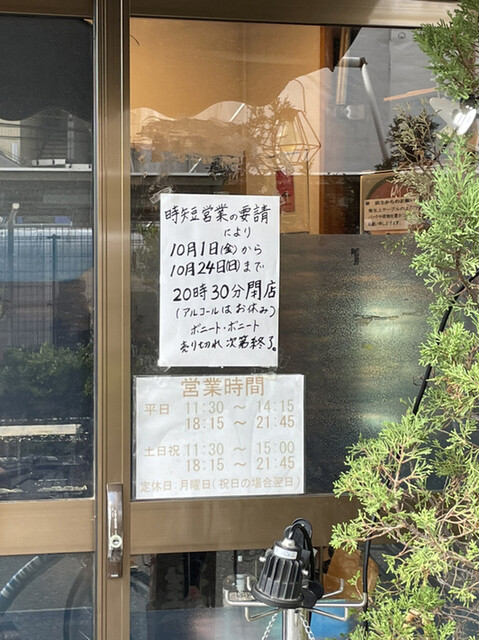 時短営業の要請
により
10月1日(金)から
10月24日(日)まで
20時30分閉店
(アルコールはお休み)
ボニート・ボニート
売り切れ次第終了。
営業時間
平日 11:30 ～ 14:15
18:15 ～ 21:45
土日祝 11:30 ～ 15:00
18:15 ～ 21:45
定休日:月曜日(祝日の場合翌日)